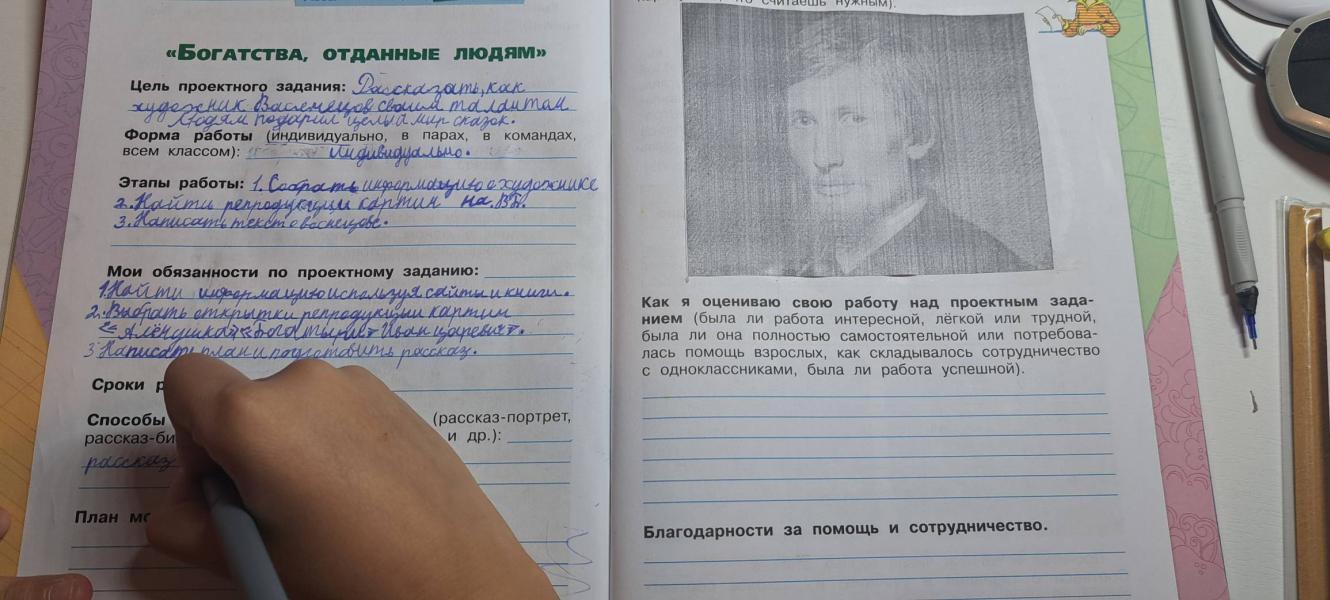 то считаешь нужным).
«БОГАТСТВА, ОТДАННЫЕ ЛЮДЯМ»
Цель проектного задания: Рассказать, как
художник Васнецов своим талантом
людям подарил целый мир сказок.
Форма работы (индивидуально, в парах, в командах,
всем классом): Индивидуально.
Этапы работы: 1. Собрать информацию о художнике
2. Найти репродукции картин на
3. Написать текст о
Мои обязанности по проектному заданию:
1. Найти информацию используя сайты и книги.
2. Выбрать открытки репродукции картин
"Алёнушка" "Богатыри" "Иван царевич".
3 Написать план и подготовить рассказ.
Сроки
Способы (рассказ-портрет,
и др.):
рассказ
План
Как я оцениваю свою работу над проектным зада-
нием (была ли работа интересной, лёгкой или трудной,
была ли она полностью самостоятельной или потребова-
лась помощь взрослых, как складывалось сотрудничество
с одноклассниками, была ли работа успешной).
Благодарности за помощь и сотрудничество.